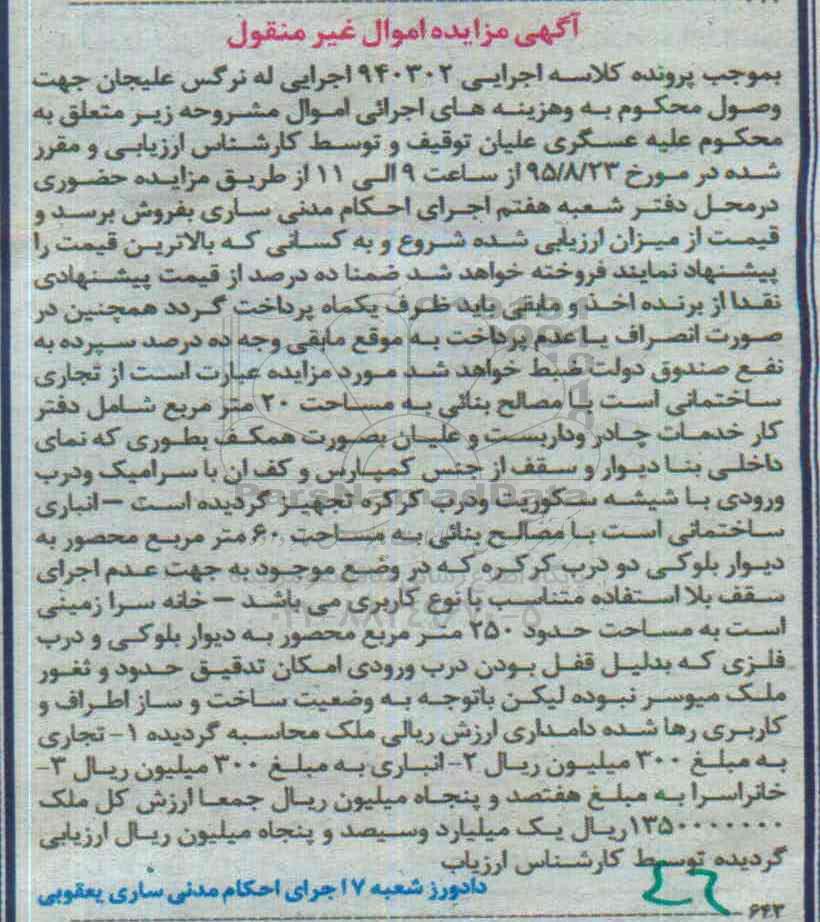 آگهی مزایده اموال غیر منقول
بموجب پرونده کلاسه اجرایی ۹۴۰۳۰۲ اجرایی له نرگس علیجان جهت
وصول محکوم به وهزینه های اجرائی اموال مشروحه زیر متعلق به
محکوم علیه عسگری علیان توقیف و توسط کارشناس ارزیابی و مقرر
شده در مورخ ۹۵/۸/۲۳ از ساعت ۹ الی ۱۱ از طریق مزایده حضوری
درمحل دفتر شعبه هفتم اجرای احکام مدنی ساری بفروش برسد و
قیمت از میزان ارزیابی شده شروع و به کسانی که بالاترین قیمت را
پیشنهاد نمایند فروخته خواهد شد ضمنا ده درصد از قیمت پیشنهادی
نقدا از برنده اخذ و مابقی باید ظرف یکماه پرداخت گردد همچنین در
صورت انصراف یا عدم پرداخت به موقع مابقی وجه ده درصد سپرده به
نفع صندوق دولت ضبط خواهد شد مورد مزایده عبارت است از تجاری
ساختمانی است با مصالح بنائی به مساحت ۲۰ متر مربع شامل دفتر
کار خدمات چادر وداربست و علیان بصورت همکف بطوری که نمای
داخلی بنا دیوار و سقف از جنس کمپارس و کف ان با سرامیک ودرب
ورودی با شیشه سکوریت ودرب کرکره تجهیز گردیده است – انباری
ساختمانی است با مصالح بنائی به مساحت ۶۰ متر مربع محصور به
دیوار بلوکی دو درب کرکره که در وضع موجود به جهت عدم اجرای
سقف بلا استفاده متناسب با نوع کاربری می باشد – خانه سرا زمینی
است به مساحت حدود ۲۵۰ متر مربع محصور به دیوار بلوکی و درب
فلزی که بدلیل قفل بودن درب ورودی امکان تدقیق حدود و ثغور
ملک میوسر نبوده لیکن باتوجه به وضعیت ساخت و ساز اطراف و
کاربری رها شده دامداری ارزش ریالی ملک محاسبه گردیده ۱- تجاری
به مبلغ ۳۰۰ میلیون ریال ۲- انباری به مبلغ ۳۰۰ میلیون ریال ۳-
خانراسرا به مبلغ هفتصد و پنجاه میلیون ریال جمعا ارزش کل ملک
۱۳۵۰۰۰۰۰۰۰ ریال یک میلیارد وسیصد و پنجاه میلیون ریال ارزیابی
گردیده توسط کارشناس ارزیاب
دادورز شعبه ۷ اجرای احکام مدنی ساری یعقوبی
۶۴۳
ParsNamadData